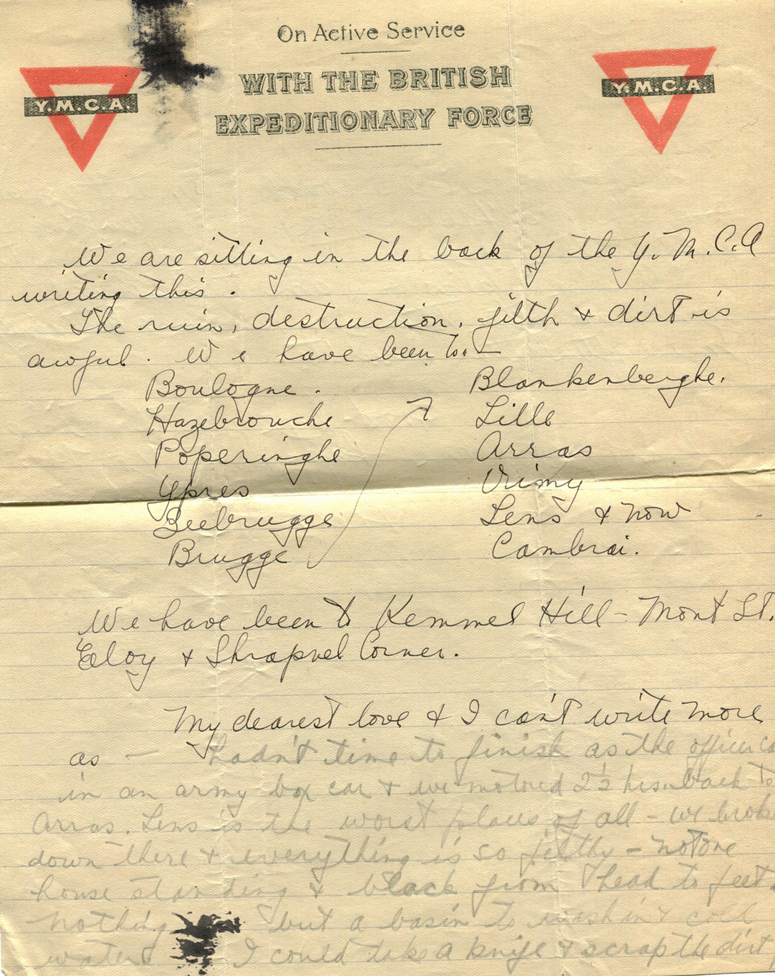 On Active Service
WITH THE BRITISH
EXPEDITIONARY FORCE
Y.M.C.A.
Y.M.C.A.
We are sitting in the back of the Y.M.C.A
writing this.
The ruin, destruction, filth & dirt is
awful. We have been to:—
Boulogne.
Hazebrouche
Poperinghe
Ypres
Zeebrugge
Brugge
Blankenberghe.
Lille
Arras
Vimy
Lens & now
Cambrai.
We have been to Kemmel Hill - Mont St.
Eeloy & Shrapnel Corner.
My dearest love & I can't write more
as — hadn't time to finish as the officer
in an army box car & we motored 2½ back to
Arras. Lens is the worst place of all - we broke
down there & everything is so filthy - not one
house standing & black from head to feet
nothing but a basin to wash in & cold
water I could take a knife & scrap the dirt